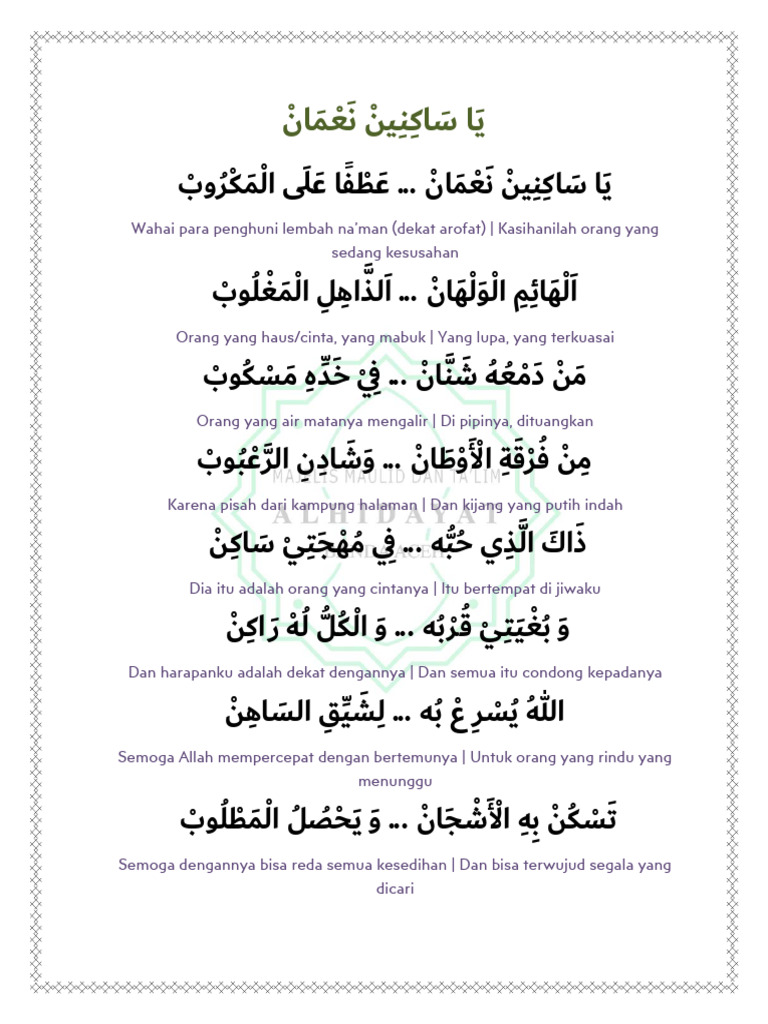 يَا سَاكِنِينْ نَعْمَانْ
يَا سَاكِنِينْ نَعْمَانْ ... عَطْفًا عَلَى الْمَكْرُوبْ
Wahai para penghuni lembah na'man (dekat arofat) | Kasihanilah orang yang
sedang kesusahan
اَلْهَائِمِ الْوَلْهَانْ ... اَلذَّاهِلِ الْمَغْلُوبْ
Orang yang haus/cinta, yang mabuk | Yang lupa, yang terkuasai
مَنْ دَمْعُهُ شَنَّانْ ... فِيْ خَدِّهِ مَسْكُوبْ
Orang yang air matanya mengalir | Di pipinya, dituangkan
مِنْ فُرْقَةِ الْأَوْطَانْ ... وَشَادِنِ الرَّعْبُوبْ
MAJELIS MAULID DAN TA'LIM
Karena pisah dari kampung halaman | Dan kijang yang putih indah
ALHIDAYAT
ذَاكَ الَّذِي حُبُّه ... فِي مُهْجَتِيْ سَاكِنْ
BANDA ACEH
Dia itu adalah orang yang cintanya | Itu bertempat di jiwaku
وَ بُغْيَتِيْ قُرْبُه ... وَ الْكُلُّ لُهْ رَاكِنْ
Dan harapanku adalah dekat dengannya | Dan semua itu condong kepadanya
اللهُ يُسْرِ عْ بُه ... لِشَيِّقِ السَاهِنْ
Semoga Allah mempercepat dengan bertemunya | Untuk orang yang rindu yang
menunggu
تَسْكُنْ بِهِ الْأَشْجَانْ ... وَ يَحْصُلُ الْمَطْلُوبْ
Semoga dengannya bisa reda semua kesedihan | Dan bisa terwujud segala yang
dicari